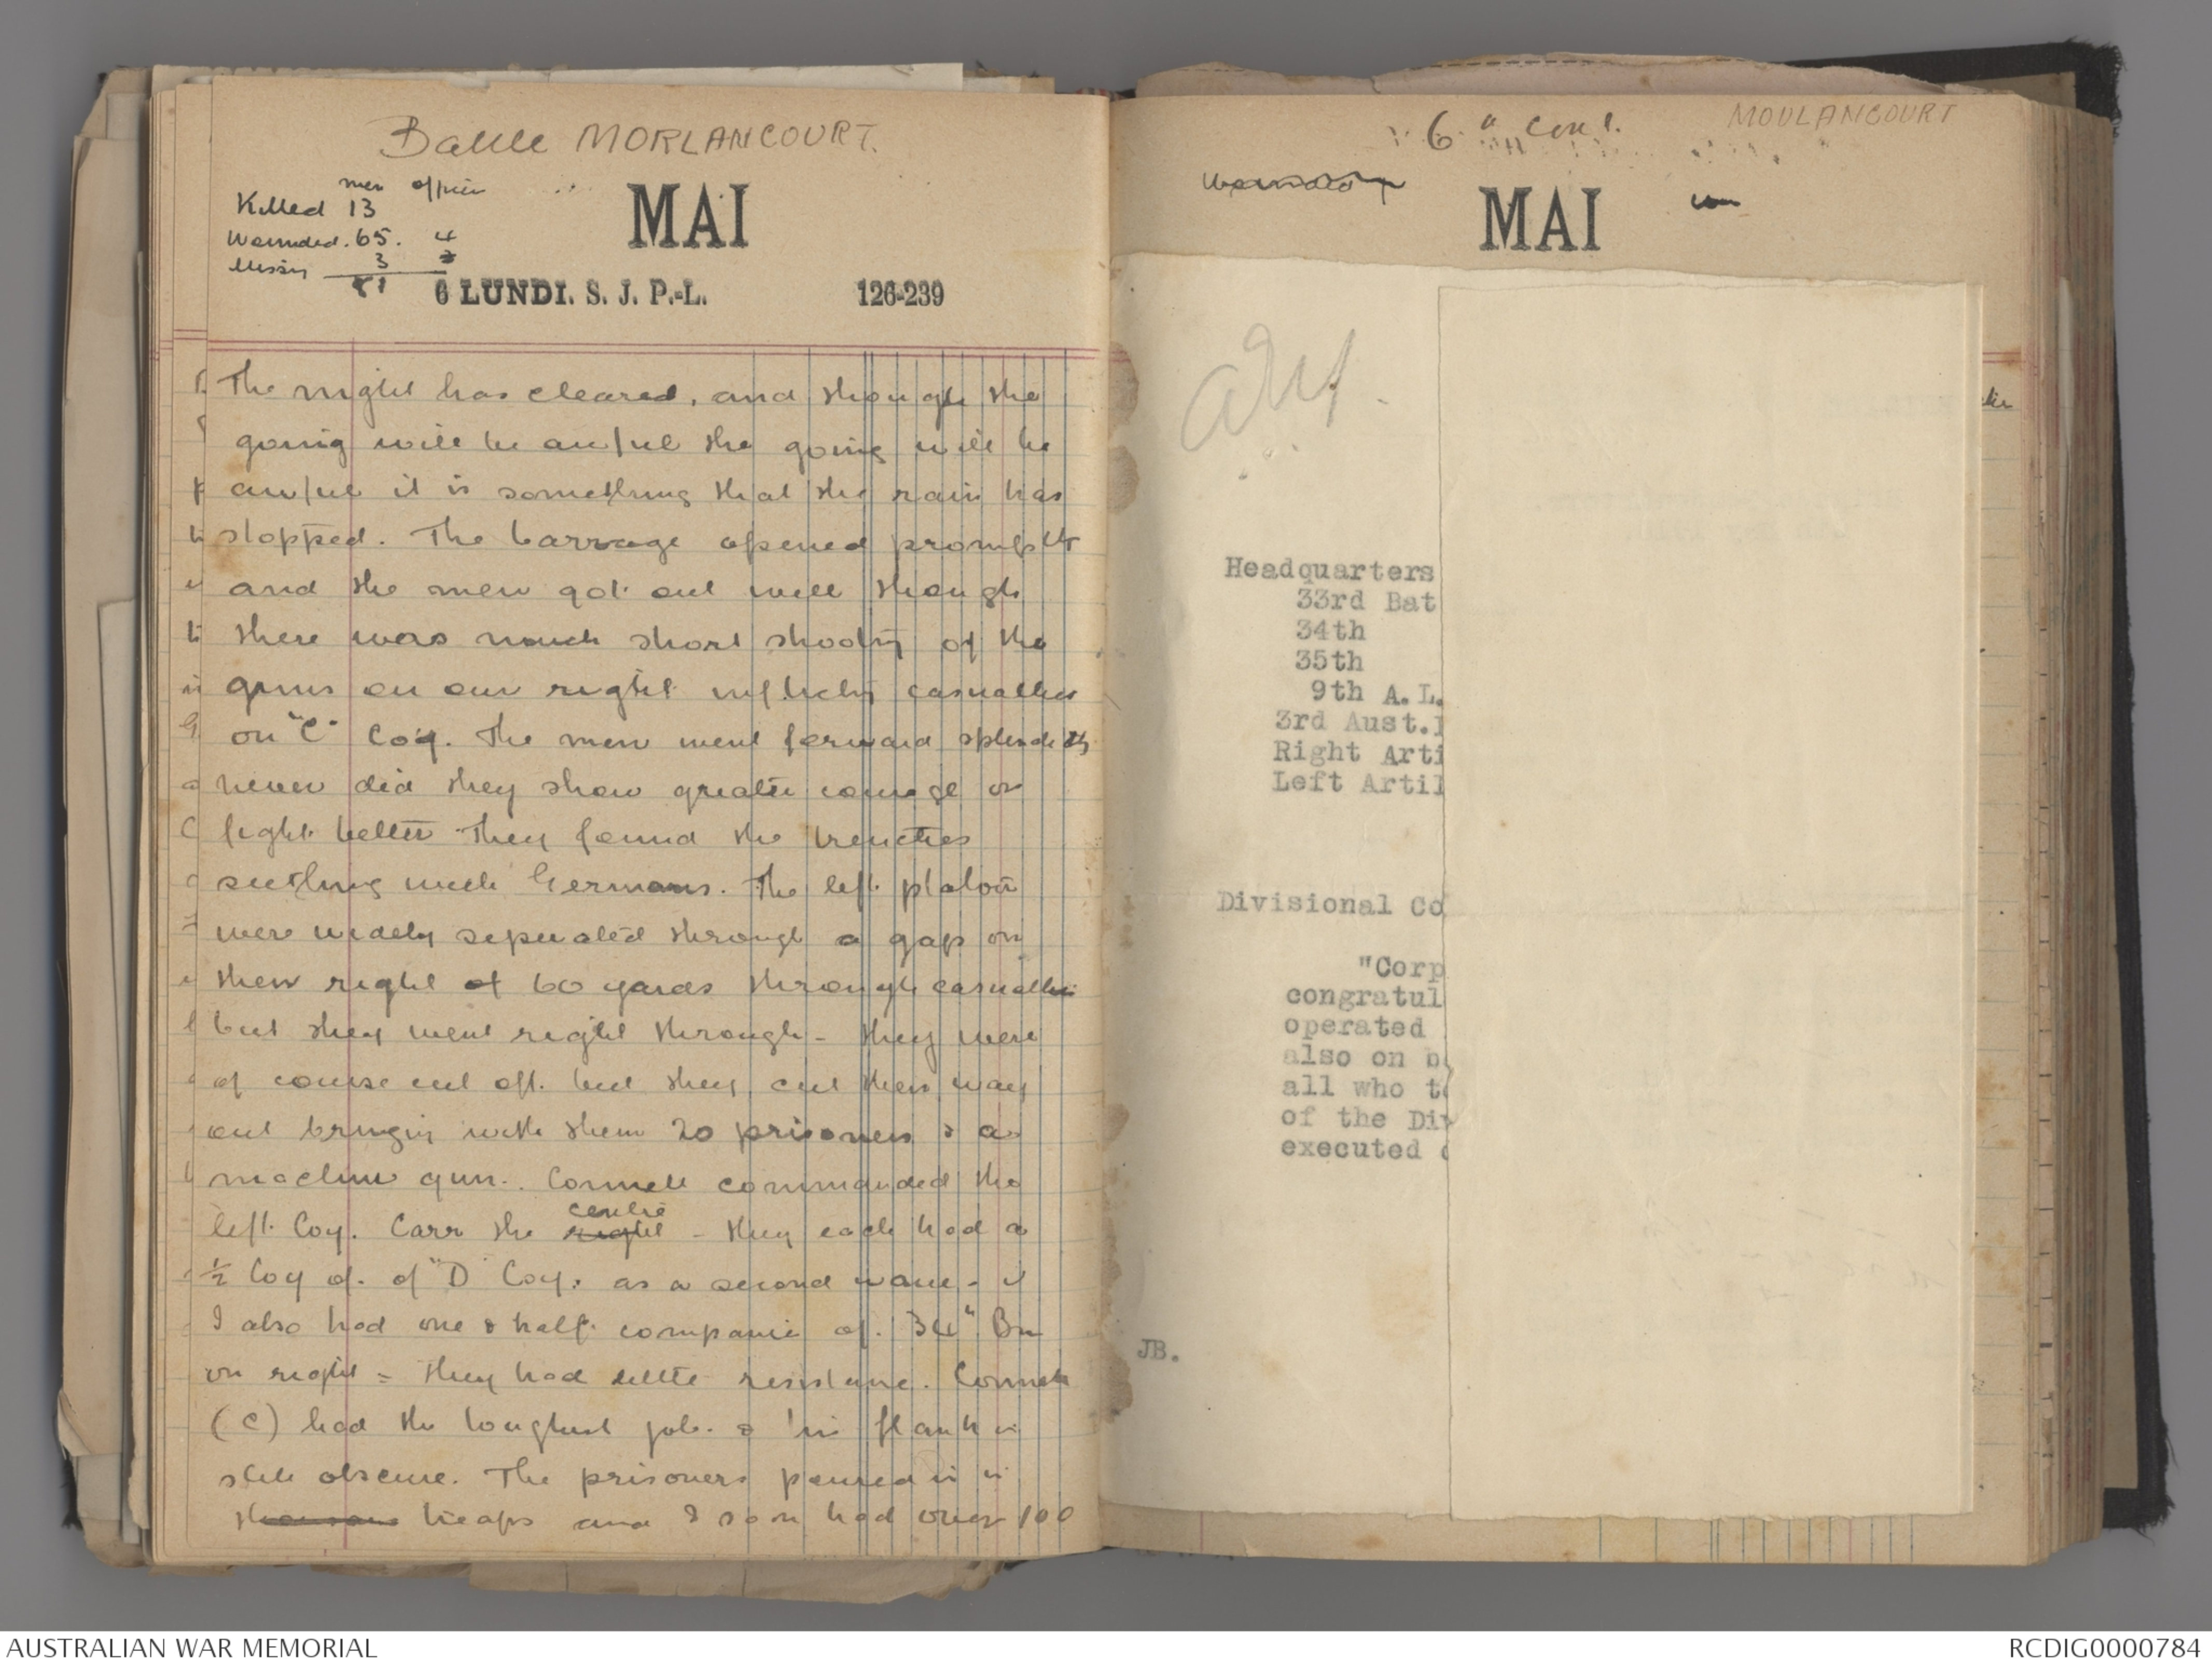 Battle MORLANCOURT.
men officers
Killed 13
Wounded. 65. 4
Missing 3
81
MAI
6 LUNDI. S. J. P.-L. 126-239
The night has cleared, and though the
going will be awful the going will be
awful it is something that the rain has
stopped. The barrage opened promptly
and the men got out well though
there was much short shooting of the
guns on our right inflicting casualties
on "C" Coy. The men went forward splendidly
never did they show greater courage or
fight better They found the trenches
seething with Germans. The left platoon
were widely seperated through a gap on
their right of 60 yards through casualties
but they went right through - they were
of course cut off. but they cut their way
out bringing with them 20 prisoners & a
machine gun. Connell commanded the
left Coy. Carr the right centre - they each had a
½ Coy of. of "D" Coy. as a second wave -
I also had one & half companies of. 34" Bn
on right = they had little resistance. Connell
(C) had the toughest job. & his flank is
still obscure. The prisoners poured in in
heaps and I soon had over 100
6" Cont. MOULANCOURT
MAI
Headquarters
33rd Bat
34th
35th
9th A.L.
3rd Aust.
Right Arti
Left Artil
Divisional Co
"Corp
congratul
operated
also on b
all who t
of the Div
executed
JB.